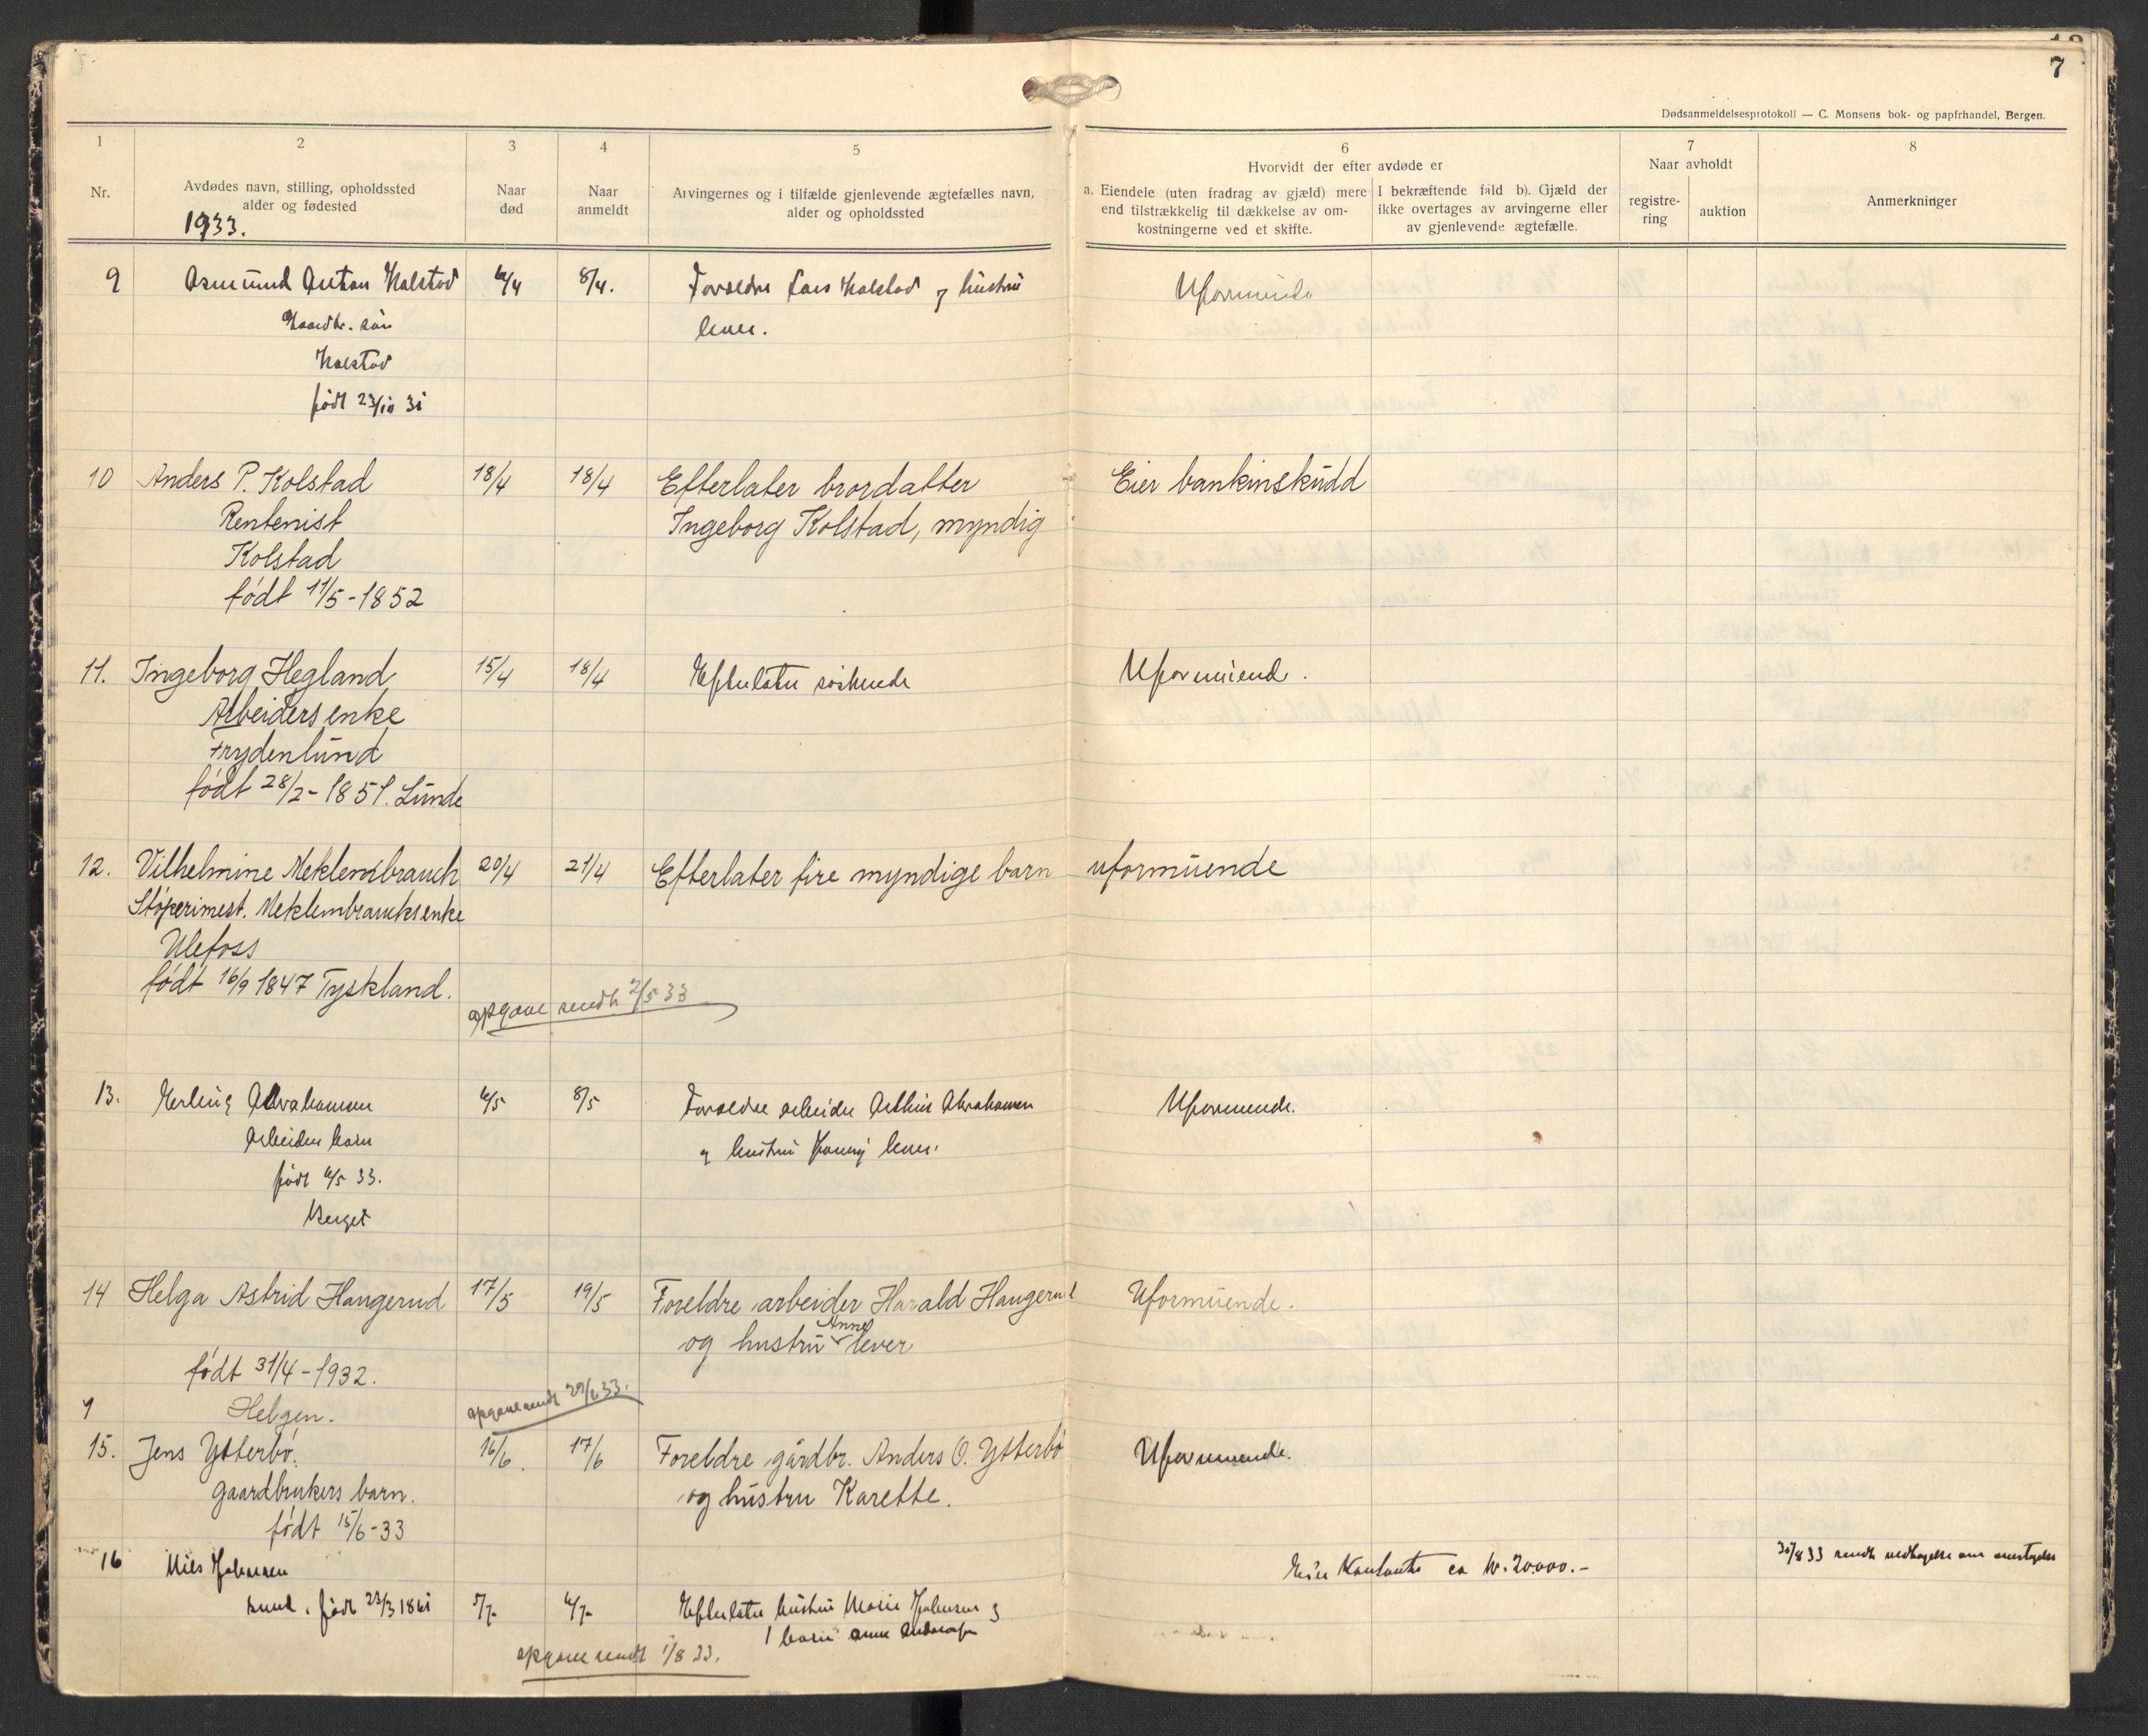 7
Dødsanmeldelsesprotokoll — C. Monsens bok- og papirhandel, Bergen.
1
Nr.
2
Avdødes navn, stilling, opholdssted
alder og fødested
1933.
3
Naar
død
4
Naar
anmeldt
5
Arvingernes og i tilfælde gjenlevende ægtefælles navn,
alder og opholdssted
6
Hvorvidt der efter avdøde er
a. Eiendele (uten fradrag av gjæld) mere
end tilstrækkelig til dækkelse av om-
kostningerne ved et skifte.
I bekræftende fald b). Gjæld der
ikke overtages av arvingerne eller
av gjenlevende ægtefælle.
7
Naar avholdt
registre-
ring
auktion
8
Anmerkninger
9 Asmund Anton Kolstad 6/4 8/4. Foreldre Lars Kolstad og hustru Uformuende
Gaardbr. søn lever.
Kolstad
født 31
10 Anders P. Kolstad 18/4 18/4 Efterlater brordatter Eier bankinskudd
Rentenist Ingeborg Kolstad, myndig
Kolstad
født 11/5-1852
11. Ingeborg Hegland 15/4 18/4 Efterlater søskende Uformuend.
Arbeidersenke
Frydenlund
født 28/2-1851. Lunde
12. Vilhelmine Meklenbrauck 20/4 21/4 Efterlater fire myndige barn uformuende
Støperimest. Meklembraucks enke
Ulefoss
født 16/9 1847 Tyskland.
opgave sendt 2/5 33
13. Erling Abrahamsen 6/5 8/5 Foreldre arbeider Arthur Abrahamsen Uformuende.
Arbeiders barn og hustru lever.
født 6/5 33.
Berget
14 Helga Astrid Haugerud 17/5 19/5 Foreldre arbeider Harald Haugerud Uformuende.
og hustru Anne lever
født 31/4-1932.
Helgen.
opgave sendt 29/6 33.
15. Jens Ytterbö. 16/6. 17/6 Foreldre gårdbr. Anders O. Ytterbö Uformuende.
Gaardbrukers barn. og hustru Karette.
født 15/6-33
16 Nils Johnsen Eier Kontanter ca kr. 20.000.- 33 sendt
født 23/3 1861 5/7- 6/7- Efterlater hustru Marie Johnsen og
1 barn
opgave sendt 1/8 33.